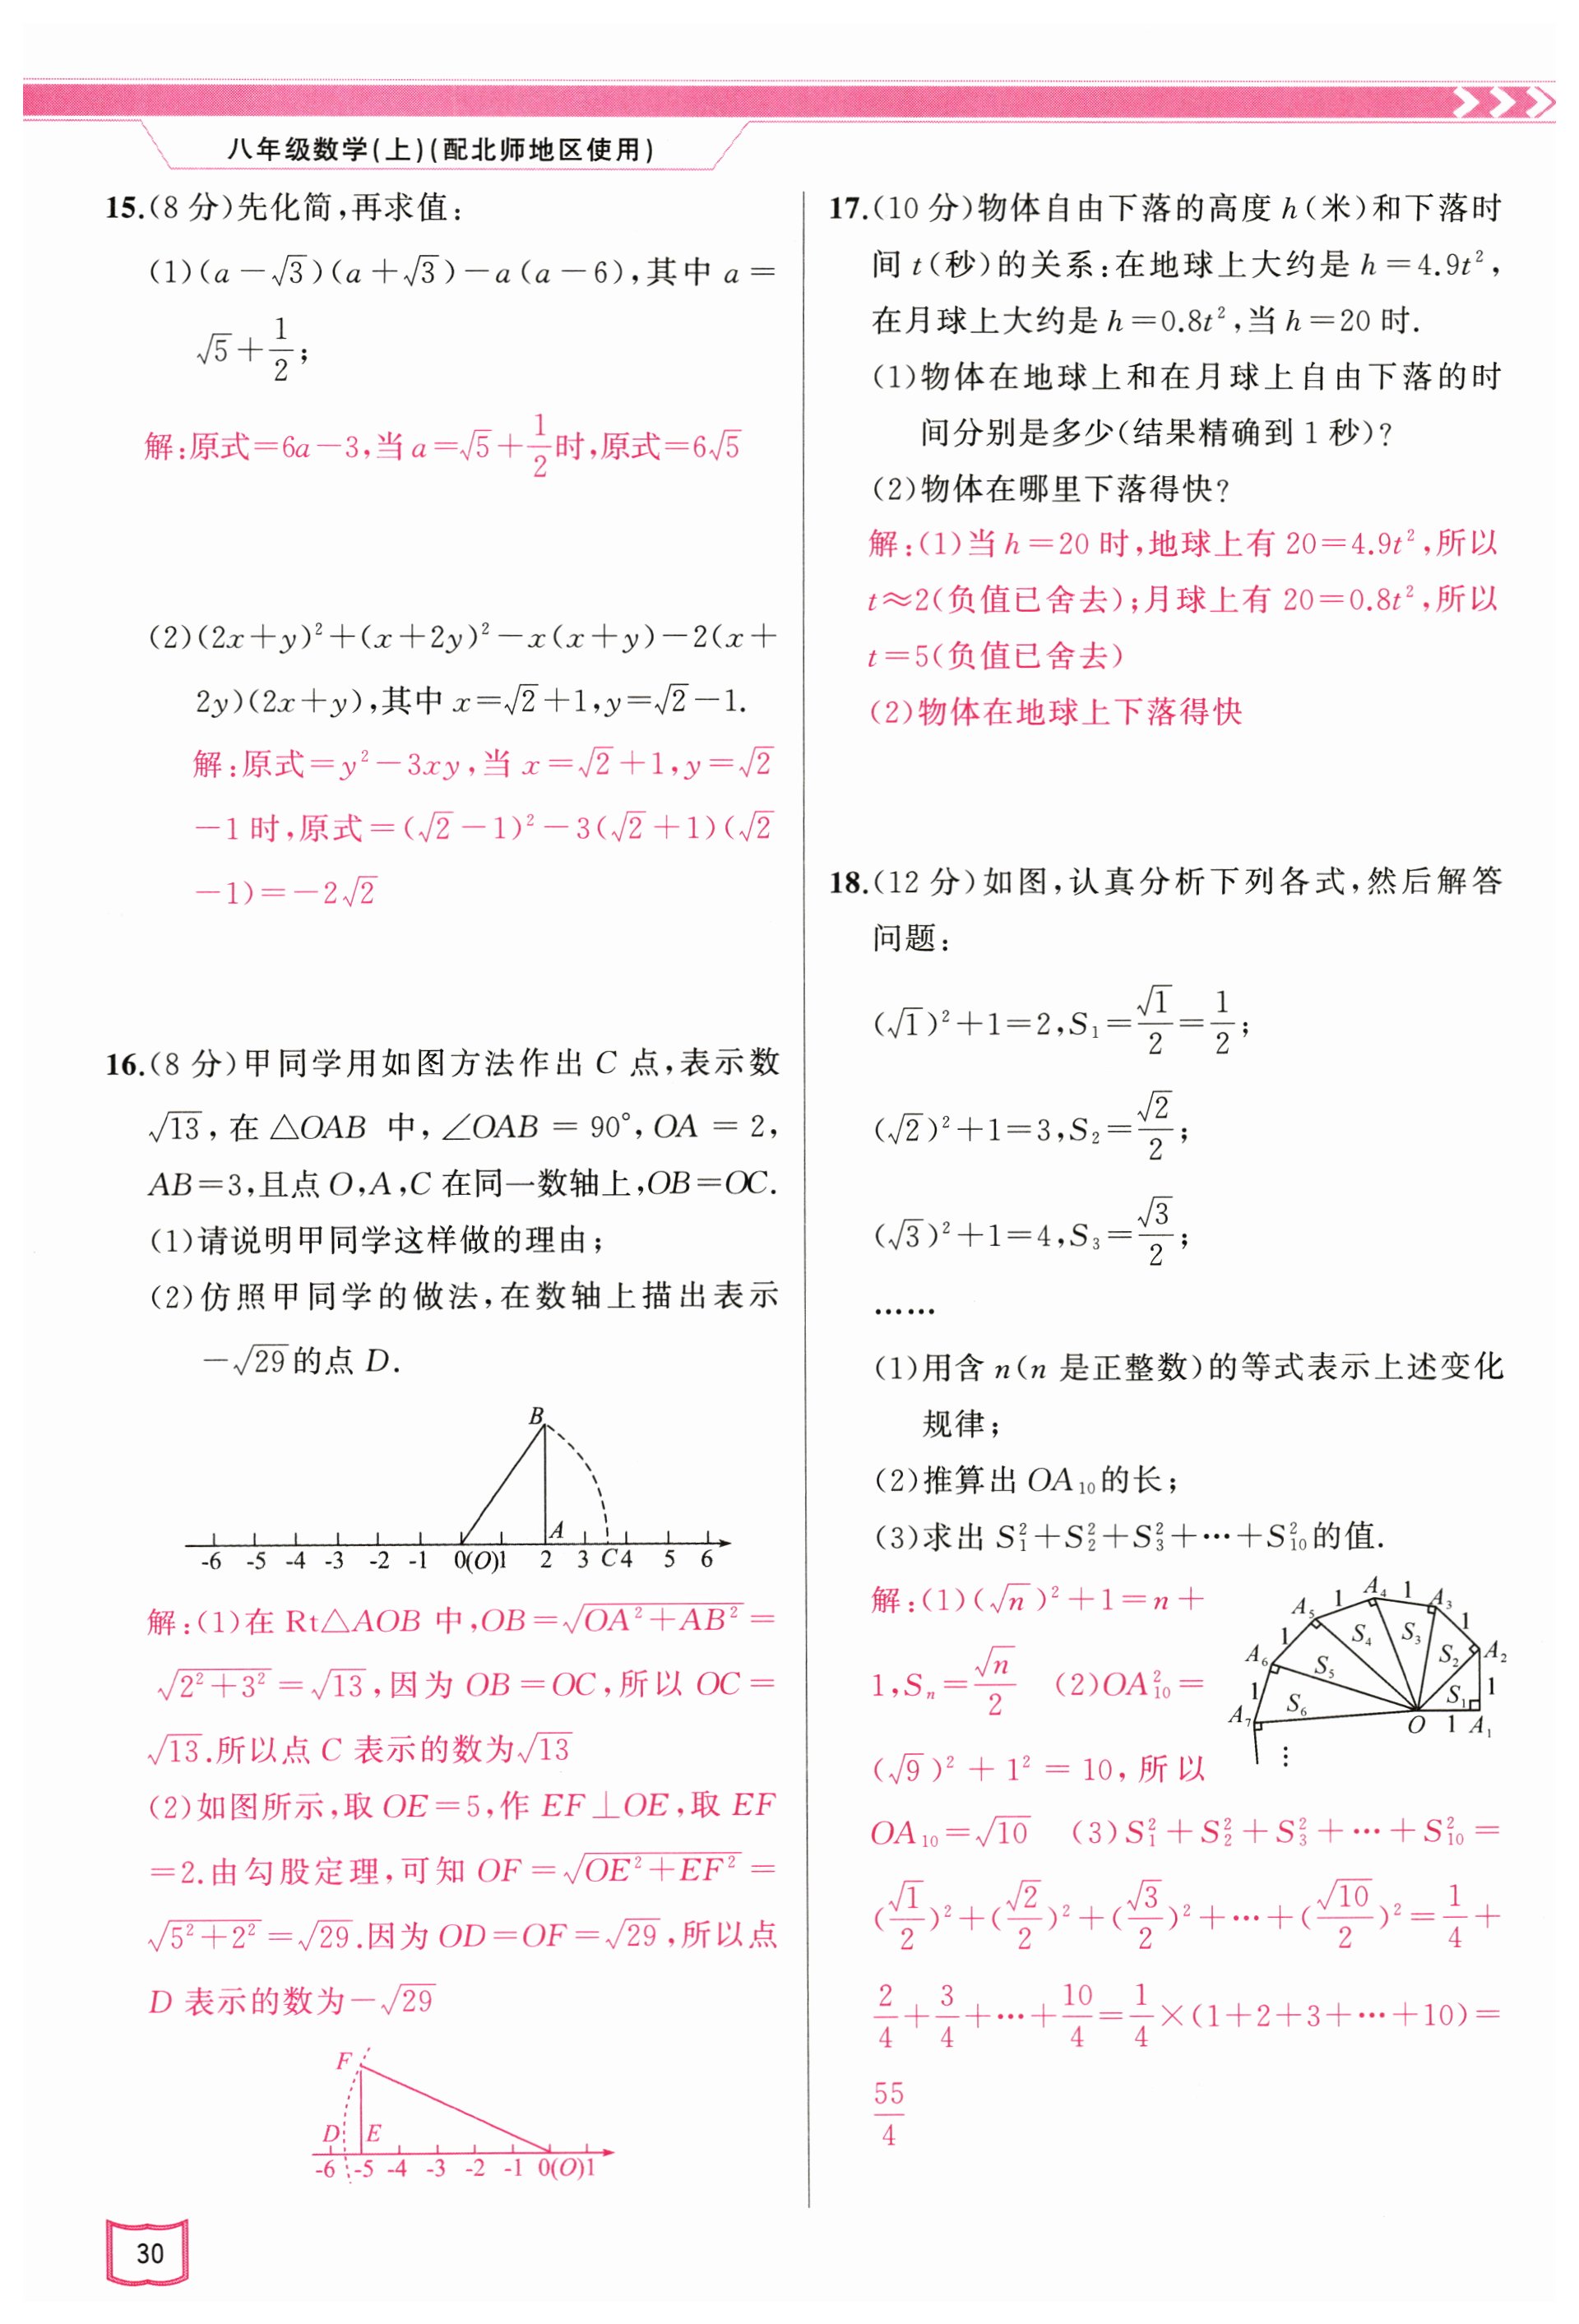 八年级数学(上)(配北师地区使用)
15.(8 分)先化简,再求值:
(1)(a－√3)(a＋√3)－a(a－6),其中 a＝
√5＋1/2;
解:原式＝6a－3,当 a＝√5＋1/2时,原式＝6√5
(2)(2x＋y)²＋(x＋2y)²－x(x＋y)－2(x＋
2y)(2x＋y),其中 x＝√2＋1,y＝√2－1.
解:原式＝y²－3xy,当 x＝√2＋1,y＝√2
－1 时,原式＝(√2－1)²－3(√2＋1)(√2
－1)＝－2√2
16.(8 分)甲同学用如图方法作出 C 点,表示数
√13,在 △OAB 中,∠OAB ＝ 90°,OA ＝ 2,
AB＝3,且点 O,A,C 在同一数轴上,OB＝OC.
(1)请说明甲同学这样做的理由;
(2)仿照甲同学的做法,在数轴上描出表示
－√29的点 D.
B
A
-6 -5 -4 -3 -2 -1 0(O)1 2 3 C4 5 6
解:(1)在 Rt△AOB 中,OB＝√(OA²＋AB²)＝
√(2²＋3²)＝√13,因为 OB＝OC,所以 OC＝
√13.所以点 C 表示的数为√13
(2)如图所示,取 OE＝5,作 EF⊥OE,取 EF
＝2.由勾股定理,可知 OF＝√(OE²＋EF²)＝
√(5²＋2²)＝√29.因为 OD＝OF＝√29,所以点
D 表示的数为－√29
F
D E
-6 -5 -4 -3 -2 -1 0(O)1
30
17.(10 分)物体自由下落的高度 h(米)和下落时
间 t(秒)的关系:在地球上大约是 h＝4.9t²,
在月球上大约是 h＝0.8t²,当 h＝20 时.
(1)物体在地球上和在月球上自由下落的时
间分别是多少(结果精确到 1 秒)?
(2)物体在哪里下落得快?
解:(1)当 h＝20 时,地球上有 20＝4.9t²,所以
t≈2(负值已舍去);月球上有 20＝0.8t²,所以
t＝5(负值已舍去)
(2)物体在地球上下落得快
18.(12 分)如图,认真分析下列各式,然后解答
问题:
(√1)²＋1＝2,S₁＝√1/2＝1/2;
(√2)²＋1＝3,S₂＝√2/2;
(√3)²＋1＝4,S₃＝√3/2;
……
(1)用含 n(n 是正整数)的等式表示上述变化
规律;
(2)推算出 OA₁₀的长;
(3)求出 S₁²＋S₂²＋S₃²＋…＋S₁₀²的值.
解:(1)(√n)²＋1＝n＋
1,Sₙ＝√n/2 (2)OA₁₀²＝
(√9)²＋1²＝10,所以
OA₁₀＝√10 (3)S₁²＋S₂²＋S₃²＋…＋S₁₀²＝
(√1/2)²＋(√2/2)²＋(√3/2)²＋…＋(√10/2)²＝1/4＋
2/4＋3/4＋…＋10/4＝1/4×(1＋2＋3＋…＋10)＝
55/4
A₅ 1 A₄ 1 A₃
1 S₄ S₃ 1
A₆ S₅ S₂ A₂
1 S₆ S₁ 1
A₇ O 1 A₁
⋮